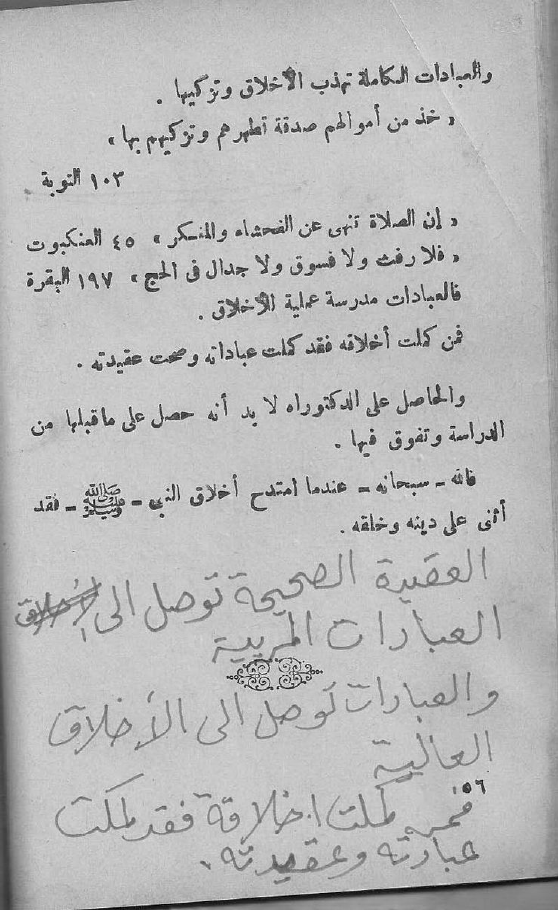 والعبادات الكاملة تهذب الأخلاق وتزكيها .
« خذ من أموالهم صدقة تطهرهم وتزكيهم بها »
١٠٣ التوبة
« إن الصلاة تنهى عن الفحشاء والمنكر » ٤٥ العنكبوت
« فلا رفث ولا فسوق ولا جدال فى الحج » ١٩٧ البقرة
فالعبادات مدرسة عملية للأخلاق .
فمن كملت أخلاقه فقد كملت عباداته وصحت عقيدته .
والحاصل على الدكتوراه لا بد أنه حصل على ماقبلها من
الدراسة وتفوق فيها .
فالله - سبحانه - عندما امتدح أخلاق النبى - ﷺ - فقد
أثنى على دينه وخلقه .
العقيدة الصحيحة توصل الى الأخلاق
العبادات المربية
والعبادات توصل الى الأخلاق
العالية
٥٦
فمن كملت اخلاقة فقد كملت
عبادته وعقيدته .